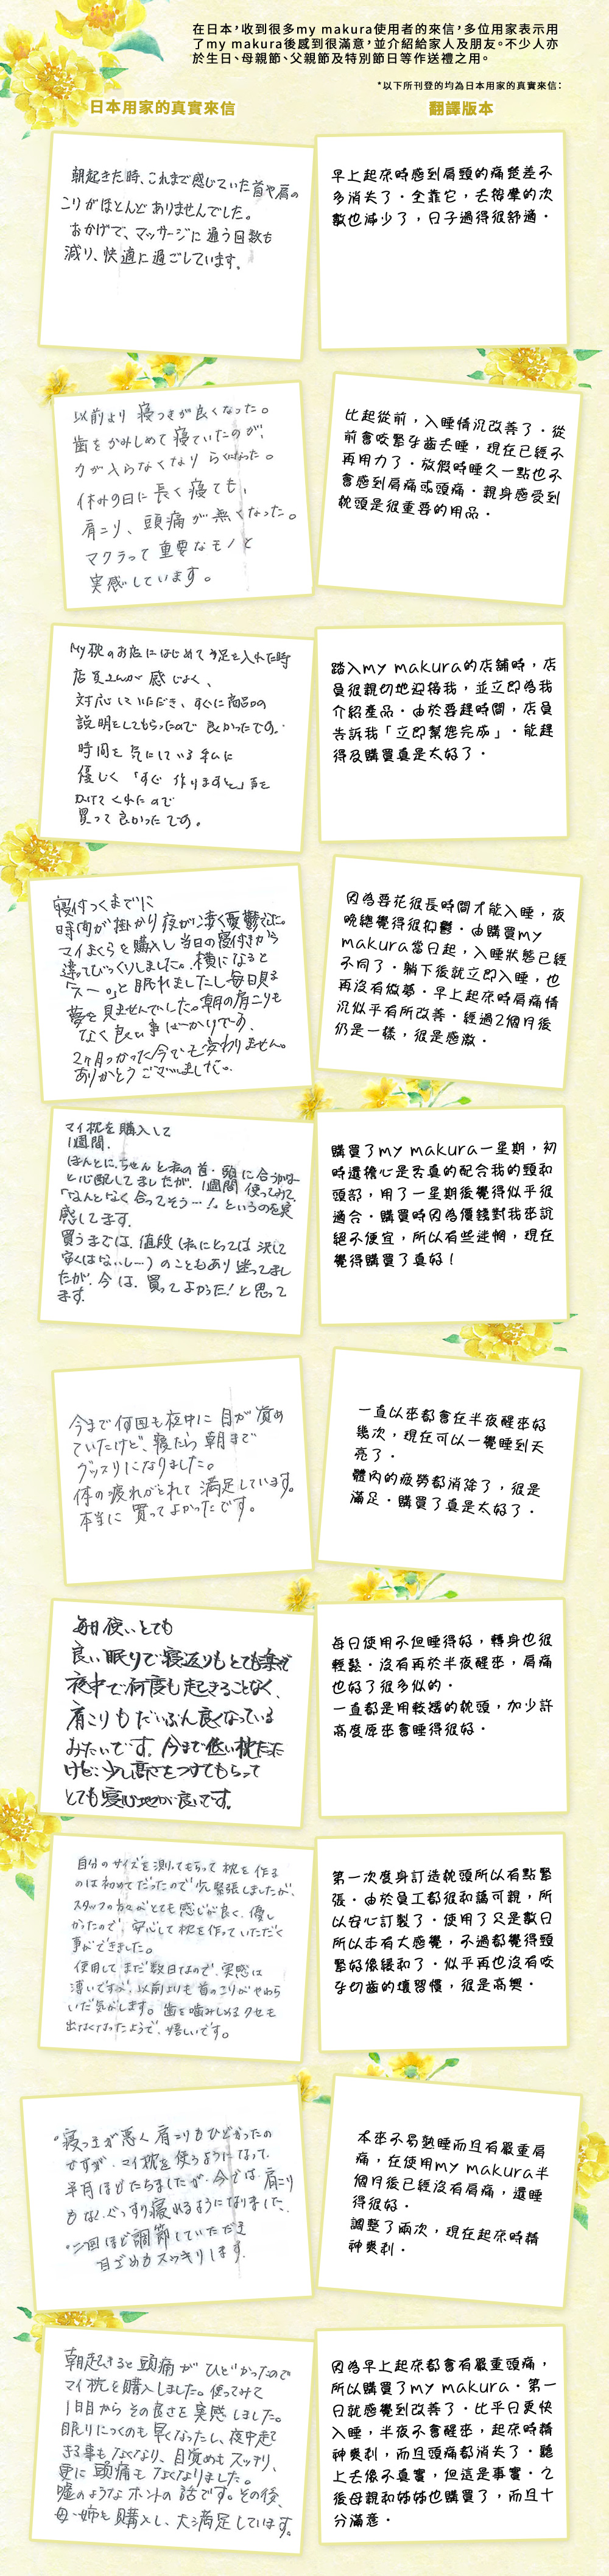 在日本,收到很多my makura使用者的來信,多位用家表示用
了my makura後感到很滿意,並介紹給家人及朋友。不少人亦
於生日、母親節、父親節及特別節日等作送禮之用。
*以下所刊登的均為日本用家的真實來信:
日本用家的真實來信
翻譯版本
朝起きた時、これまで感じていた首や肩の
こりがほとんどありませんでした。
おかげで、マッサージに通う回数も
減り、快適に過ごしています。
早上起床時感到肩頸的痛楚差不
多消失了。全靠它,去按摩的次
數也減少了,日子過得很舒適。
以前より 寝つきが良くなった。
歯をかみしめて寝ていたのが、
力が入らなくなり らくになった。
休みの日に長く寝ても、
肩こり、頭痛が無くなった。
マクラって重要なモノと
実感しています。
比起從前,入睡情況改善了。從
前會咬緊牙齒去睡,現在已經不
再用力了。放假時睡久一點也不
會感到肩痛或頭痛。親身感受到
枕頭是很重要的用品。
My枕のお店にはじめて足を入れた時
店員さんが感じよく、
対応していただき、すぐに商品の
説明をしてもらったので良かったです。
時間を気にしている私に
優しく「すぐ作りますと」声を
かけてくれたので
買って良かったです。
踏入my makura的店舖時,店
員很親切地迎接我,並立即為我
介紹產品。由於要趕時間,店員
告訴我「立即幫您完成」。能趕
得及購買真是太好了。
寝付つくまでに
時間が掛かり夜が凄く憂鬱でした。
マイまくらを購入し当日の寝付きから
違ってびっくりしました。横になると
「スー。」と眠れましたし毎日見る
夢を見ませんでした。朝の肩こりも
なく良い事ばかりです。
2ヶ月つかった今でも変わりません。
ありがとうございました。
因為要花很長時間才能入睡,夜
晚總覺得很抑鬱。由購買my
makura當日起,入睡狀態已經
不同了。躺下後就立即入睡,也
再沒有做夢。早上起床時肩痛情
況似乎有所改善。經過2個月後
仍是一樣,很是感激。
マイ枕を購入して
1週間。
ほんとに、ちゃんと私の首・頭に合うかなー
と心配してましたが、1週間使ってみて、
「なんとなく合ってそう…!」というのを実
感してます。
買うまでは、値段(私にとっては決して
安くはないし…)のこともあり迷ってまし
たが、今は、買ってよかった!と思って
ます。
購買了my makura一星期,初
時還擔心是否真的配合我的頸和
頭部,用了一星期後覺得似乎很
適合。購買時因為價錢對我來說
絕不便宜,所以有些迷惘,現在
覺得購買了真好!
今まで何回も夜中に目が覚め
ていたけど、寝たら朝まで
グッスリになりました。
体の疲れがとれて満足しています。
本当に買ってよかったです。
一直以來都會在半夜醒來好
幾次,現在可以一覺睡到天
亮了。
體內的疲勞都消除了,很是
滿足。購買了真是太好了。
毎日使いとても
良い眠りで寝返りもとても楽で
夜中で何度も起きることなく、
肩こりもだいぶん良くなっている
みたいです。今まで低い枕だった
けど少し高さをつけてもらって
とても寝心地が良いです。
每日使用不但睡得好,轉身也很
輕鬆。沒有再於半夜醒來,肩痛
也好了很多似的。
一直都是用較矮的枕頭,加少許
高度原來會睡得很好。
自分のサイズを測ってもらって枕を作る
のは初めてだったので少し緊張しましたが、
スタッフの方々がとても感じが良く、優し
かったので、安心して枕を作っていただく
事ができました。
使用してまだ数日なので、実感は
薄いですが、以前よりも首のこりがやわら
いだ気がします。歯を噛みしめるクセも
出なくなったようで、嬉しいです。
第一次度身訂造枕頭所以有點緊
張。由於員工都很和藹可親,所
以安心訂製了。使用了只是數日
所以未有大感覺,不過都覺得頸
緊好像緩和了。似乎再也沒有咬
牙切齒的壞習慣,很是高興。
・寝つきが悪く肩こりもひどかったの
ですが、マイ枕を使うようになって、
半月ほどたちましたが、今では、肩こり
もなく、ぐっすり寝れるようになりました。
・二回ほど調節していただき
目ざめもスッキリします。
本來不易熟睡而且有嚴重肩
痛,在使用my makura半
個月後已經沒有肩痛,還睡
得很好。
調整了兩次,現在起床時精
神爽利。
朝起きると頭痛がひどかったので
マイ枕を購入しました。使ってみて
1日目からその良さを実感しました。
眠りにつくのも早くなったし、夜中起て
きる事もなくなり、目覚めもスッキリ、
更に頭痛もなくなりました。
嘘のようなホントの話です。その後、
母・姉も購入し、大満足しています。
因為早上起床都會有嚴重頭痛,
所以購買了my makura。第一
日就感覺到改善了。比平日更快
入睡,半夜不會醒來,起床時精
神爽利,而且頭痛都消失了。聽
上去像不真實,但這是事實。之
後母親和姊姊也購買了,而且十
分滿意。